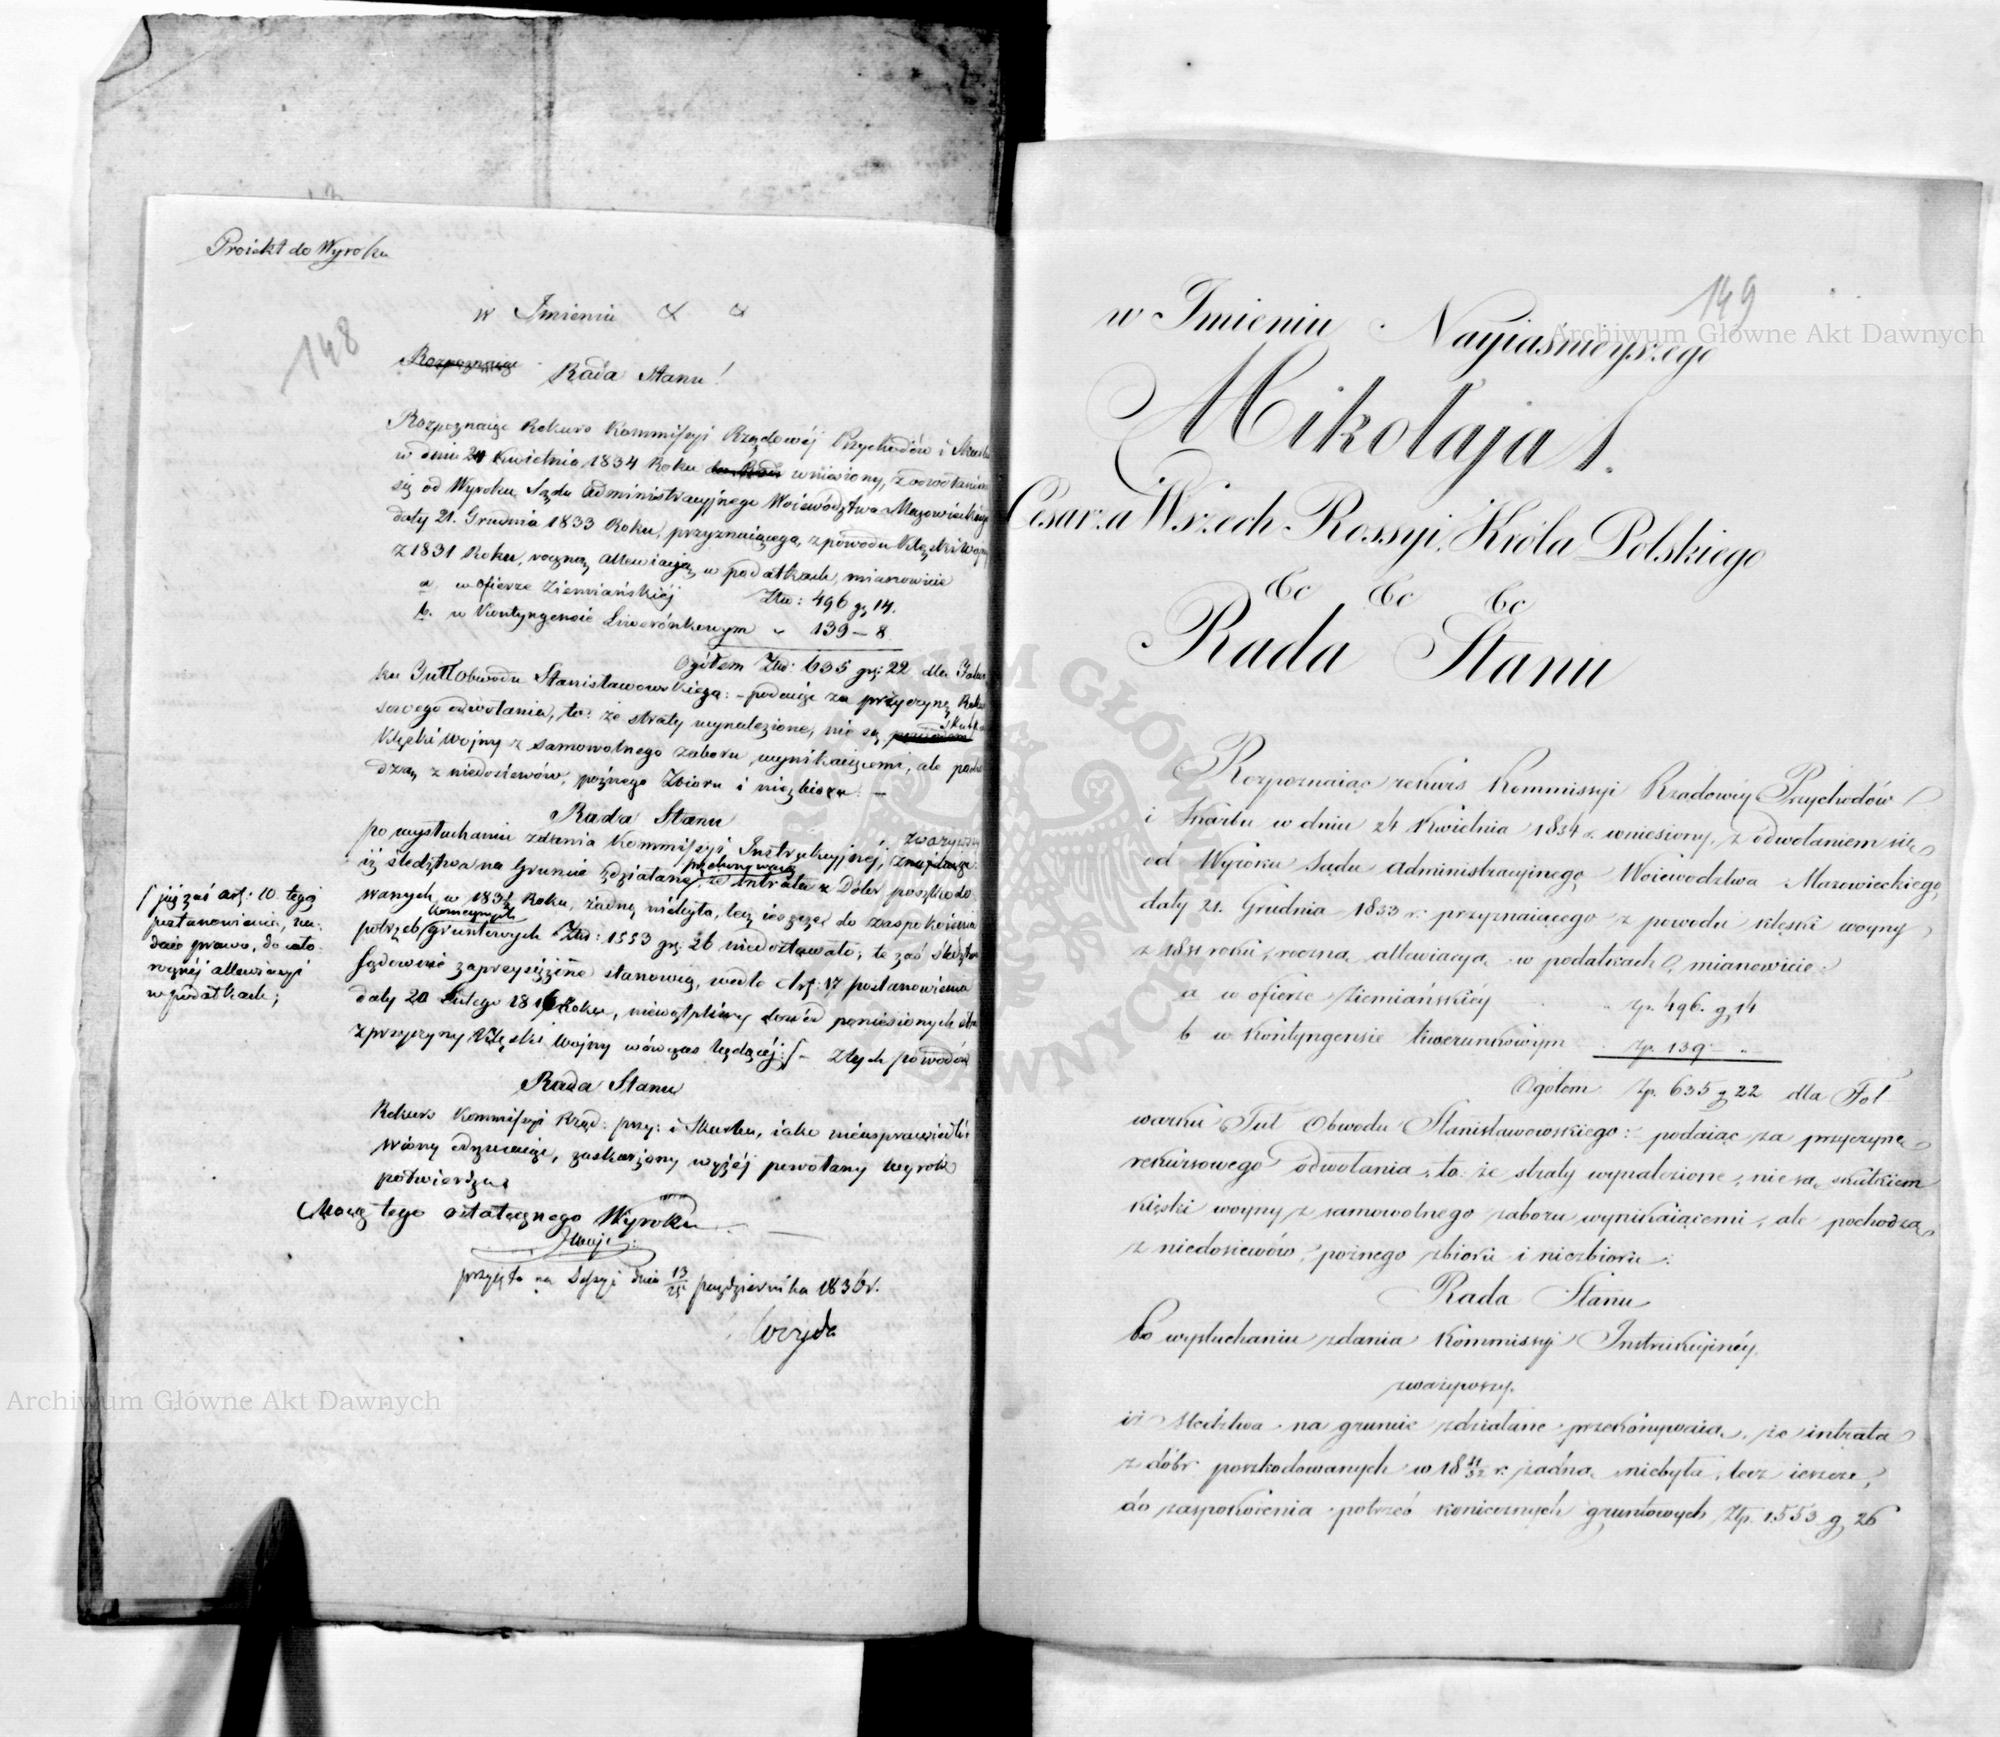 Proiekt do Wyroku
148
w Imieniu & &
Rozpoznaiąc Rada Stanu!
Rozpoznaiąc Rekurs Kommissyi Rządowéj Przychodów i Skarbu
w dniu 24 Kwietnia 1834 Roku wniesiony, z odwołaniem
się od Wyroku Sądu Administracyjnego Woiewództwa Mazowieckiego
daty 21. Grudnia 1833 Roku, przyznaiącego, z powodu Klęski Wojny
z 1831 Roku, roczną allewiacyą w podatkach, mianowicie
a, w ofierze Ziemiańskiéj Złtt: 496 gr 14.
b. w Kontyngensie Liwerónkowym " 139 – 8
Ogółem Złtt: 635 gr: 22 dla Folwar
ku Jutt Obwodu Stanisławowskiego: – podaiąc za przyczynę Rekur
sowego odwołania, to: że straty wynalezione, nie są powodem skutkiem
Klęski wojny z samowolnego zaboru, wynikaiącemi, ale pocho
dzą z niedosiewów, poźnego Zbioru i niezbioru: –
Rada Stanu
po wysłuchaniu zdania Kommissyi Instrukcyjnéj, zważywszy
iż śledztwa na Gruncie zdziałane przekonywaią, że Intrata z Dóbr poszkodo
wanych w 1831/2 Roku, żadną niebyła, lecz ieszcze do zaspokoienia
potrzeb koniecznych gruntowych Złtt: 1553 gr: 26 niedostawało; te zaś śledztwa
sądownie zaprzysiężone stanowią, wedle Art: 17 postanowienia
daty 20 Lutego 1816 Roku, niewątpliwy dowód poniesionych strat
z przyczyny Klęski Wojny wówczas będącéj: ſ – z tych powodów
ſ już zaś art: 10. tegoż
postanowienia, na-
daie prawo, do cało
rocznéj allewiacyi
w podatkach;
Rada Stanu
Rekurs Kommissyi Rząd: przy: i Skarbu, iako nieusprawiedli
wiony odrzucaiąc, zaskarżony wyżéj powołany wyrok
potwierdza.
Mocą tego ostatecznego Wyroku
przyięto na Sessyi dnia 13/25 października 1836 r.
149
w Imieniu Nayiaśnieyszego
Mikołaja I.
Cesarza Wszech Rossyi, Króla Polskiego
&c &c &c
Rada Stanu
Rozpoznaiąc rekurs Kommissyi Rządowéy Przychodów
i Skarbu w dniu 24 Kwietnia 1834 r. wniesiony, z odwołaniem się
od Wyroku Sądu Administracyinego Woiewodztwa Mazowieckiego,
daty 21. Grudnia 1833 r. przyznaiącego z powodu klęski woyny
z 1831 roku, roczną allewiacyą w podatkach, mianowicie:
a w ofierze Ziemiańskiéy Zp. 496. g. 14
b w Kontyngensie liwerunkowym Zp. 139 "
Ogółem Zp. 635 g 22 dla Fol
warku Jut Obwodu Stanisławowskiego: podaiąc za przyczynę
rekursowego odwołania, to: że straty wynalezione, nie są skutkiem
klęski woyny z samowolnego zaboru wynikaiącemi, ale pochodzą
z niedosiewów, poźnego zbioru i niezbioru:
Rada Stanu
Po wysłuchaniu zdania Kommissyi Instrukcyinéy,
zważywszy.
iż śledztwa na gruncie zdziałane przekonywaią, że intrata
z dóbr poszkodowanych w 18 31/32 r. żadną niebyła, lecz ieszcze,
do zaspokoienia potrzeb koniecznych gruntowych Złp. 1553 g 26
Archiwum Główne Akt Dawnych
Archiwum Główne Akt Dawnych